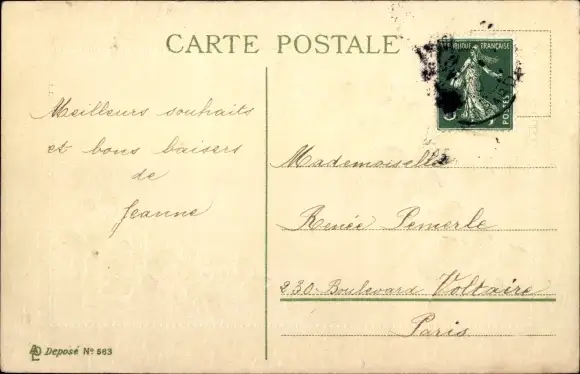 CARTE POSTALE
RÉPUBLIQUE FRANÇAISE
POSTES
Meilleurs souhaits
et bons baisers
de
Jeanne
Mademoiselle
Renée Pemerle
230 Boulevard Voltaire
Paris
Deposé Nº 563